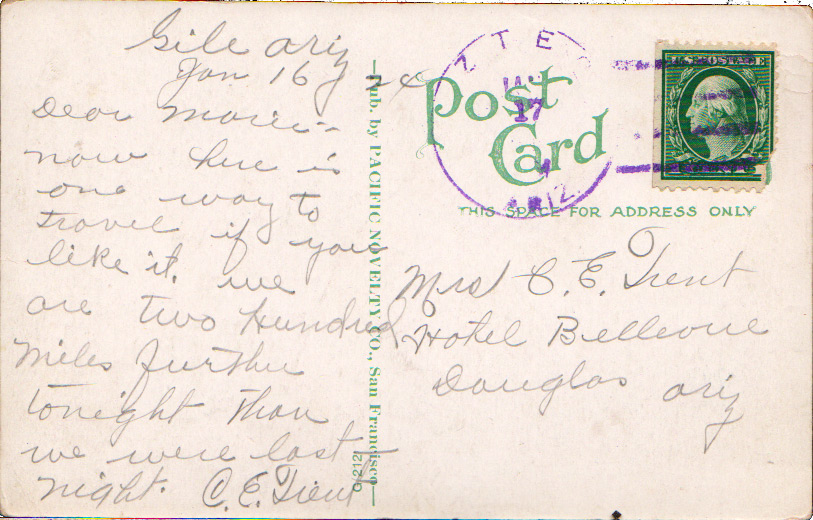 Gile Ariz
Jan 16
Dear Marie--
now here is
one way to
travel if you
like it. we
are two Hundred
Miles further
tonight than
we were last
night. C. E. Trent
Pub. by PACIFIC NOVELTY CO., San Francisco
O-212
Post
Card
17
ARIZ.
U.S. POSTAGE
THIS SPACE FOR ADDRESS ONLY
Mrs C. E. Trent
Hotel Bellevue
Douglas Ariz